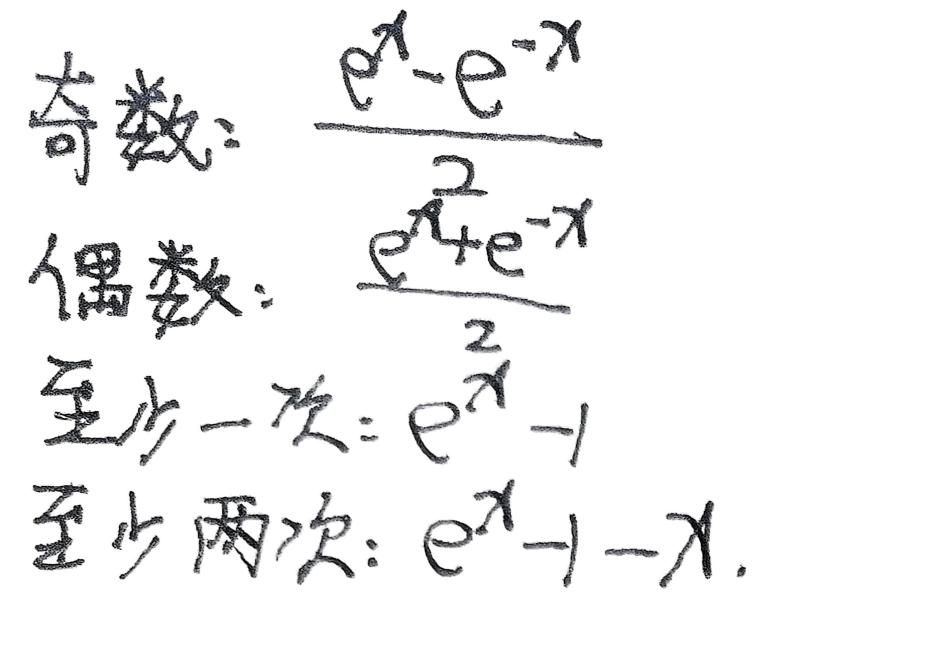 奇数: (e^x - e^{-x})/2
偶数: (e^x + e^{-x})/2
至少一次: e^x - 1
至少两次: e^x - 1 - x.